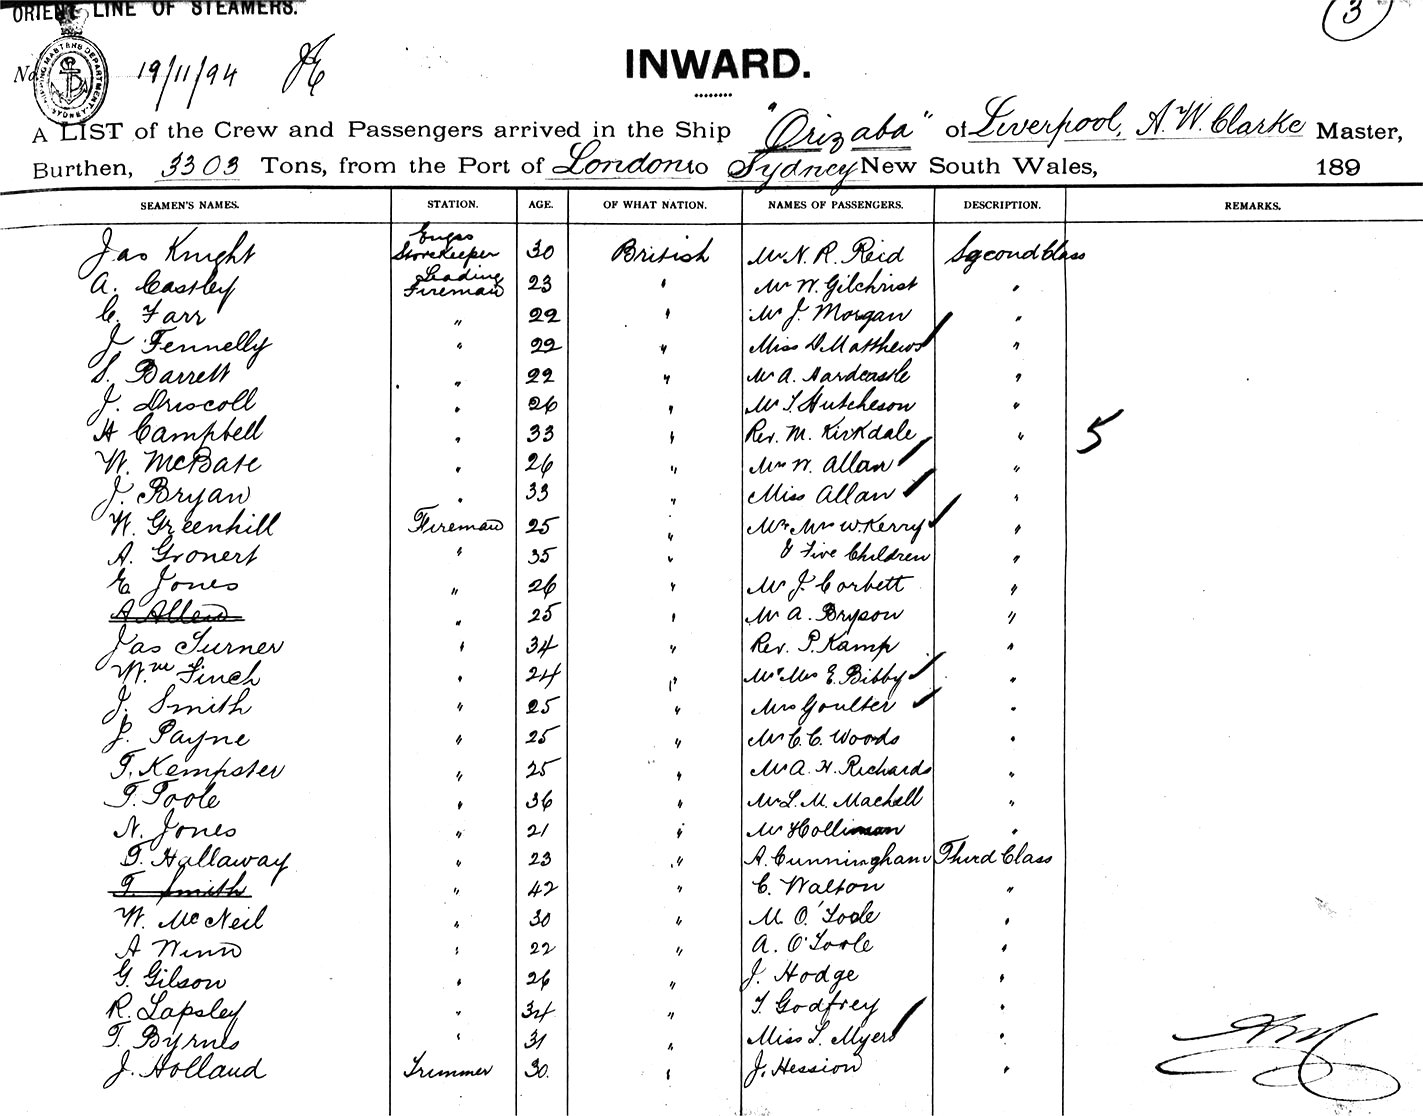 ORIENT LINE OF STEAMERS.
3
No. 19/11/94
SHIPPING MASTERS DEPARTMENT SYDNEY
INWARD.
A LIST of the Crew and Passengers arrived in the Ship "Orizaba" of Liverpool, A. W. Clarke Master,
Burthen, 3303 Tons, from the Port of London to Sydney New South Wales, 189
SEAMEN'S NAMES. STATION. AGE. OF WHAT NATION. NAMES OF PASSENGERS. DESCRIPTION. REMARKS.
Jas Knight Engrs Storekeeper 30 British Mr N. R. Reid Second Class
A. Castley Leading Fireman 23 " Mr W. Gilchrist "
C. Farr " 22 " Mr J. Morgan "
J Fennelly " 22 " Miss D Matthews "
S. Barrett " 22 " Mr A. Hardcastle "
J. Driscoll " 26 " Mr T. Hutcheson "
H Campbell " 33 " Rev. M. Kirkdale " 5
W. McBate " 26 " Mrs W. Allan "
J. Bryan " 33 " Miss Allan "
W. Greenhill Fireman 25 " Mr & Mrs W Kerry "
A. Gronert " 35 " & Five Children "
E Jones " 26 " Mr J. Corbett "
A Allen " 25 " Mr A. Bryson "
Jas Turner " 34 " Rev. P. Kamp "
Wm Finch " 24 " Mr & Mrs E. Bibby "
J. Smith " 25 " Mrs Goulter "
J. Payne " 25 " Mr C. C. Woods "
T. Kempster " 25 " Mr A. H. Richards "
T. Toole " 36 " Mr L. M. Machell "
N. Jones " 21 " Mr Holliman "
T. Hallaway " 23 " A. Cunningham Third Class
T. Smith " 42 " C. Walton "
W. McNeil " 30 " M. O'Toole "
A Winn " 22 " A. O'Toole "
G. Gilson " 26 " J. Hodge "
R. Lapsley " 34 " T. Godfrey "
T. Byrnes " 31 " Miss L. Myers "
J. Holland Trimmer 30. " J. Hession "